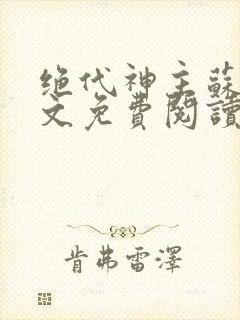 绝代神主蘇
文免費閱讀
肯弗雷澤